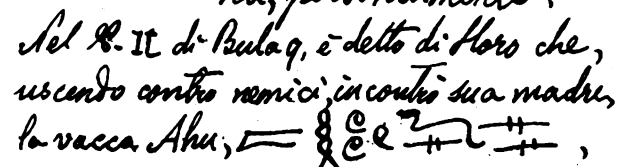 Nel P. II di Bulaq, è detto di Horo che,
uscendo contro nemici, incontrò sua madre,
la vacca Ahu,